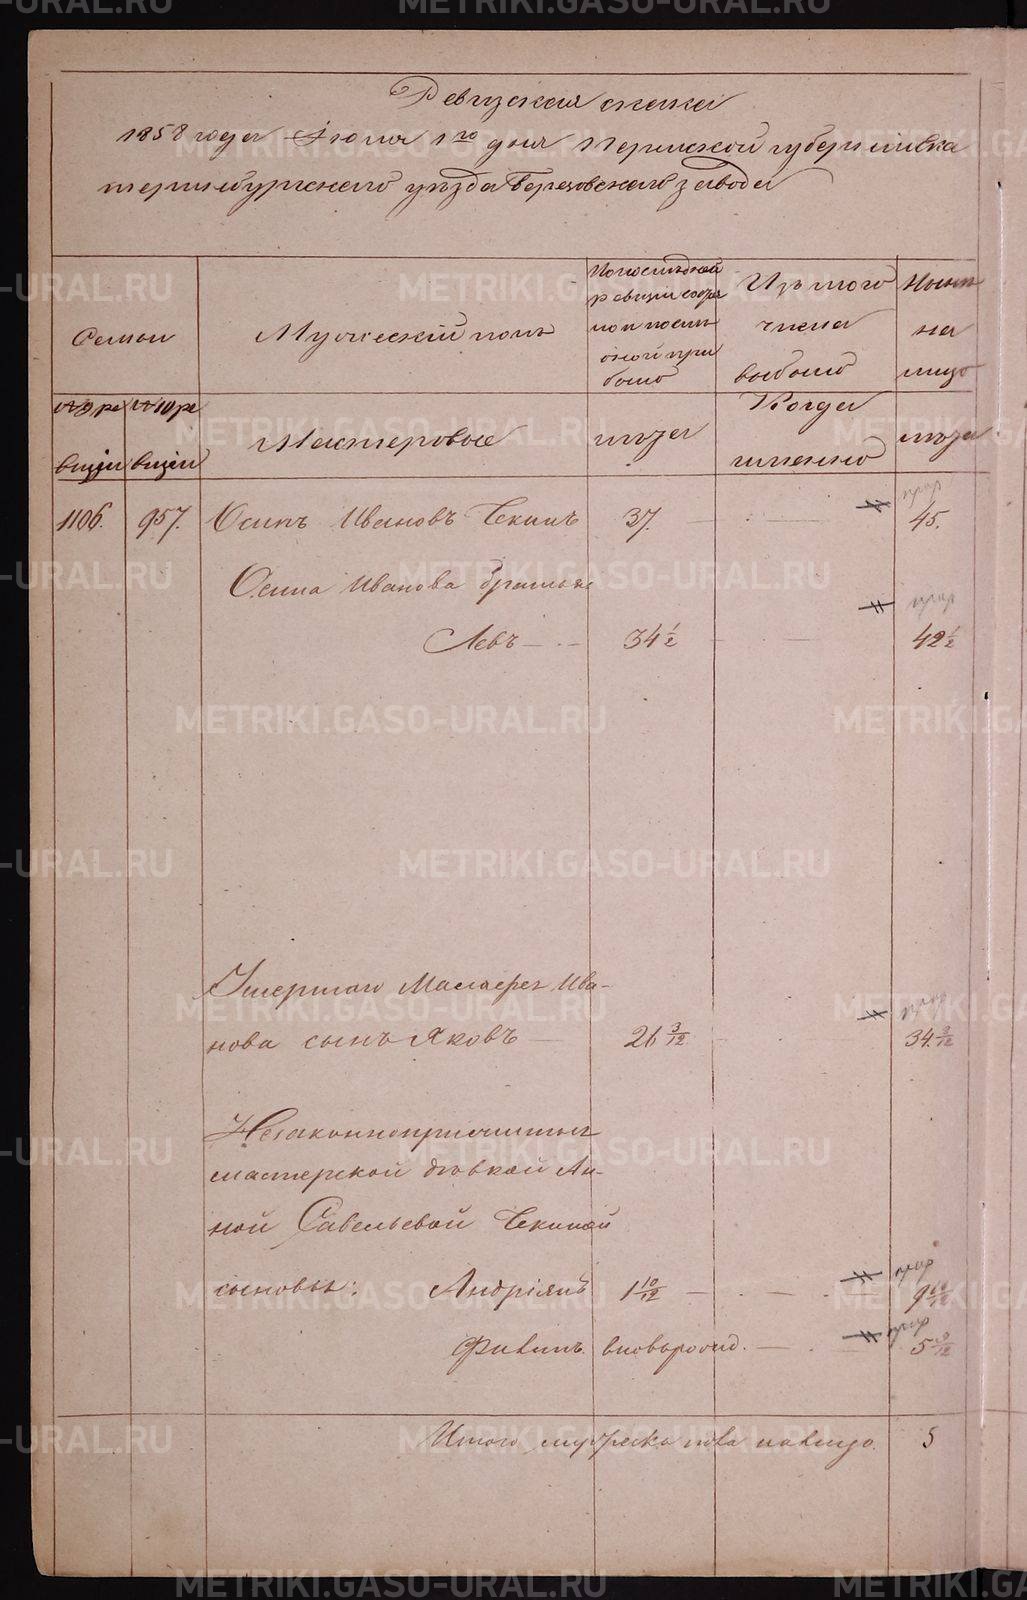 Ревизская сказка
1858 года Июня 1го дня Пермской губернии Ека
теринбургского уѣзда Березовского завода
Семьи
Мужеский полъ
По последней ревизии состояло и после оной прибыло
Изъ того числа выбыло
Нынѣ на лицо
№ 9 ревизии
№ 10 ревизии
Мастеровые
лѣта
Когда именно
лѣта
1106. 957. Осипъ Ивановъ Текинъ 37. 45.
Осипа Иванова братья:
Левъ 34 1/2 42 1/2
Умершаго Малафея Ива-
нова сынъ Яковъ 26 3/12 34 3/12
Незаконноприжитые
мастерской девкой Ан-
ной Савельевой Текиной
сыновья: Андріянъ 1 10/12 9 10/12
Филипъ. вноврожд. 5 10/12
Итого мужеска пола налицо. 5
METRIKI.GASO-URAL.RU